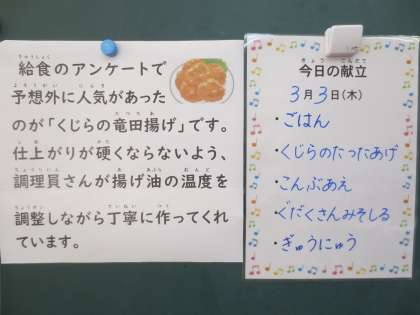 給食のアンケートで
予想外に人気があった
のが「くじらの竜田揚げ」です。
仕上がりが硬くならないよう、
調理員さんが揚げ油の温度を
調整しながら丁寧に作ってくれ
ています。
今日の献立
3月3日(木)
・ごはん
・くじらのたつたあげ
・こんぶあえ
・ぐだくさんみそしる
・ぎゅうにゅう